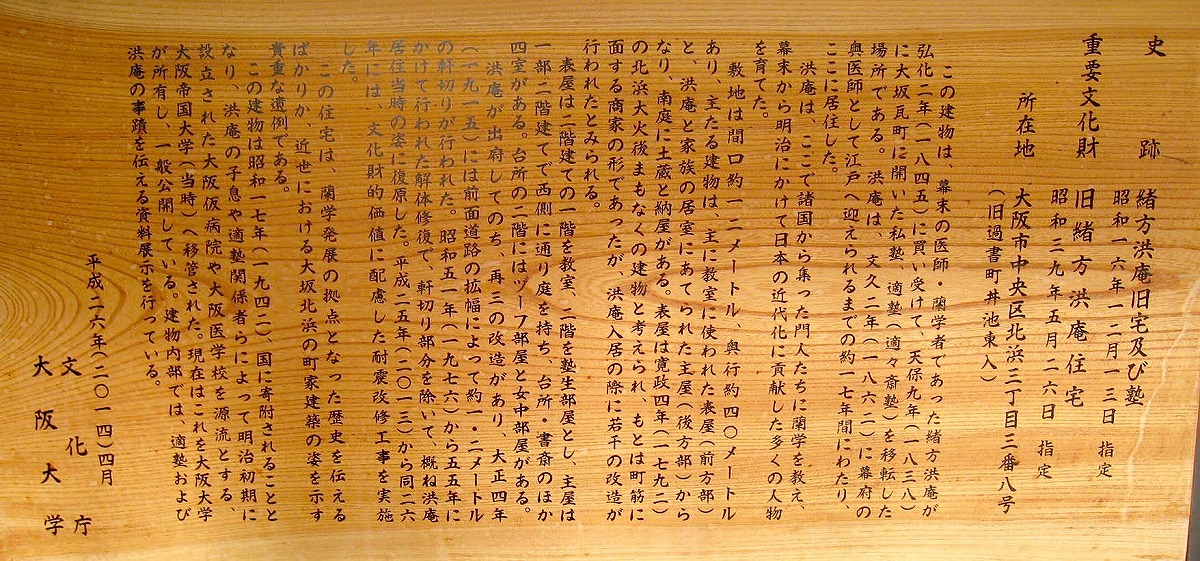 史跡　緒方洪庵旧宅及び塾
昭和一六年一二月一三日　指定
重要文化財　旧緒方洪庵住宅
昭和三九年五月二六日　指定
所在地　大阪市中央区北浜三丁目三番八号
（旧過書町井池東入）
この建物は、幕末の医師・蘭学者であった緒方洪庵が
弘化二年（一八四五）に買い受けて、天保九年（一八三八）
に大坂瓦町に開いた私塾、適塾（適々斎塾）を移転した
場所である。洪庵は、文久二年（一八六二）に幕府の
奥医師として江戸へ迎えられるまでの約一七年間にわたり、
ここに居住した。
洪庵は、ここで諸国から集った門人たちに蘭学を教え、
幕末から明治にかけて日本の近代化に貢献した多くの人物
を育てた。
敷地は間口約一二メートル、奥行約四〇メートル
あり、主たる建物は、主に教室に使われた表屋（前方部）から
と、洪庵と家族の居室にあてられた主屋（後方部）から
なり、南庭に土蔵と納屋がある。表屋は寛政四年（一七九二）
の北浜大火後まもなくの建物と考えられ、もとは町筋に
面する商家の形であったが、洪庵入居の際に若干の改造が
行われたとみられる。
表屋は二階建ての一階を教室、二階を塾生部屋とし、主屋は
一部二階建てで西側に通り庭を持ち、台所・書斎のほか
四室がある。台所の二階にはヅーフ部屋と女中部屋がある。
洪庵が出府してのち、再三の改造があり、大正四年
（一九一五）には前面道路の拡幅によって約一・二メートル
の軒切りが行われた。昭和五一年（一九七六）から五五年に
かけて行われた解体修復で、軒切り部分を除いて、概ね洪庵
居住当時の姿に復原した。平成二五年（二〇一三）から同二六
年には、文化財的価値に配慮した耐震改修工事を実施
した。
この住宅は、蘭学発展の拠点となった歴史を伝える
ばかりか、近世における大坂北浜の町家建築の姿を示す
貴重な遺例である。
この建物は昭和一七年（一九四二）、国に寄附されることと
なり、洪庵の子息や適塾関係者らによって明治初期に
設立された大阪仮病院や大阪医学校を源流とする、
大阪帝国大学（当時）へ移管された。現在はこれを大阪大学
が所有し、一般公開している。建物内部では、適塾および
洪庵の事蹟を伝える資料展示を行っている。
平成二六年（二〇一四）四月
文化庁
大阪大学